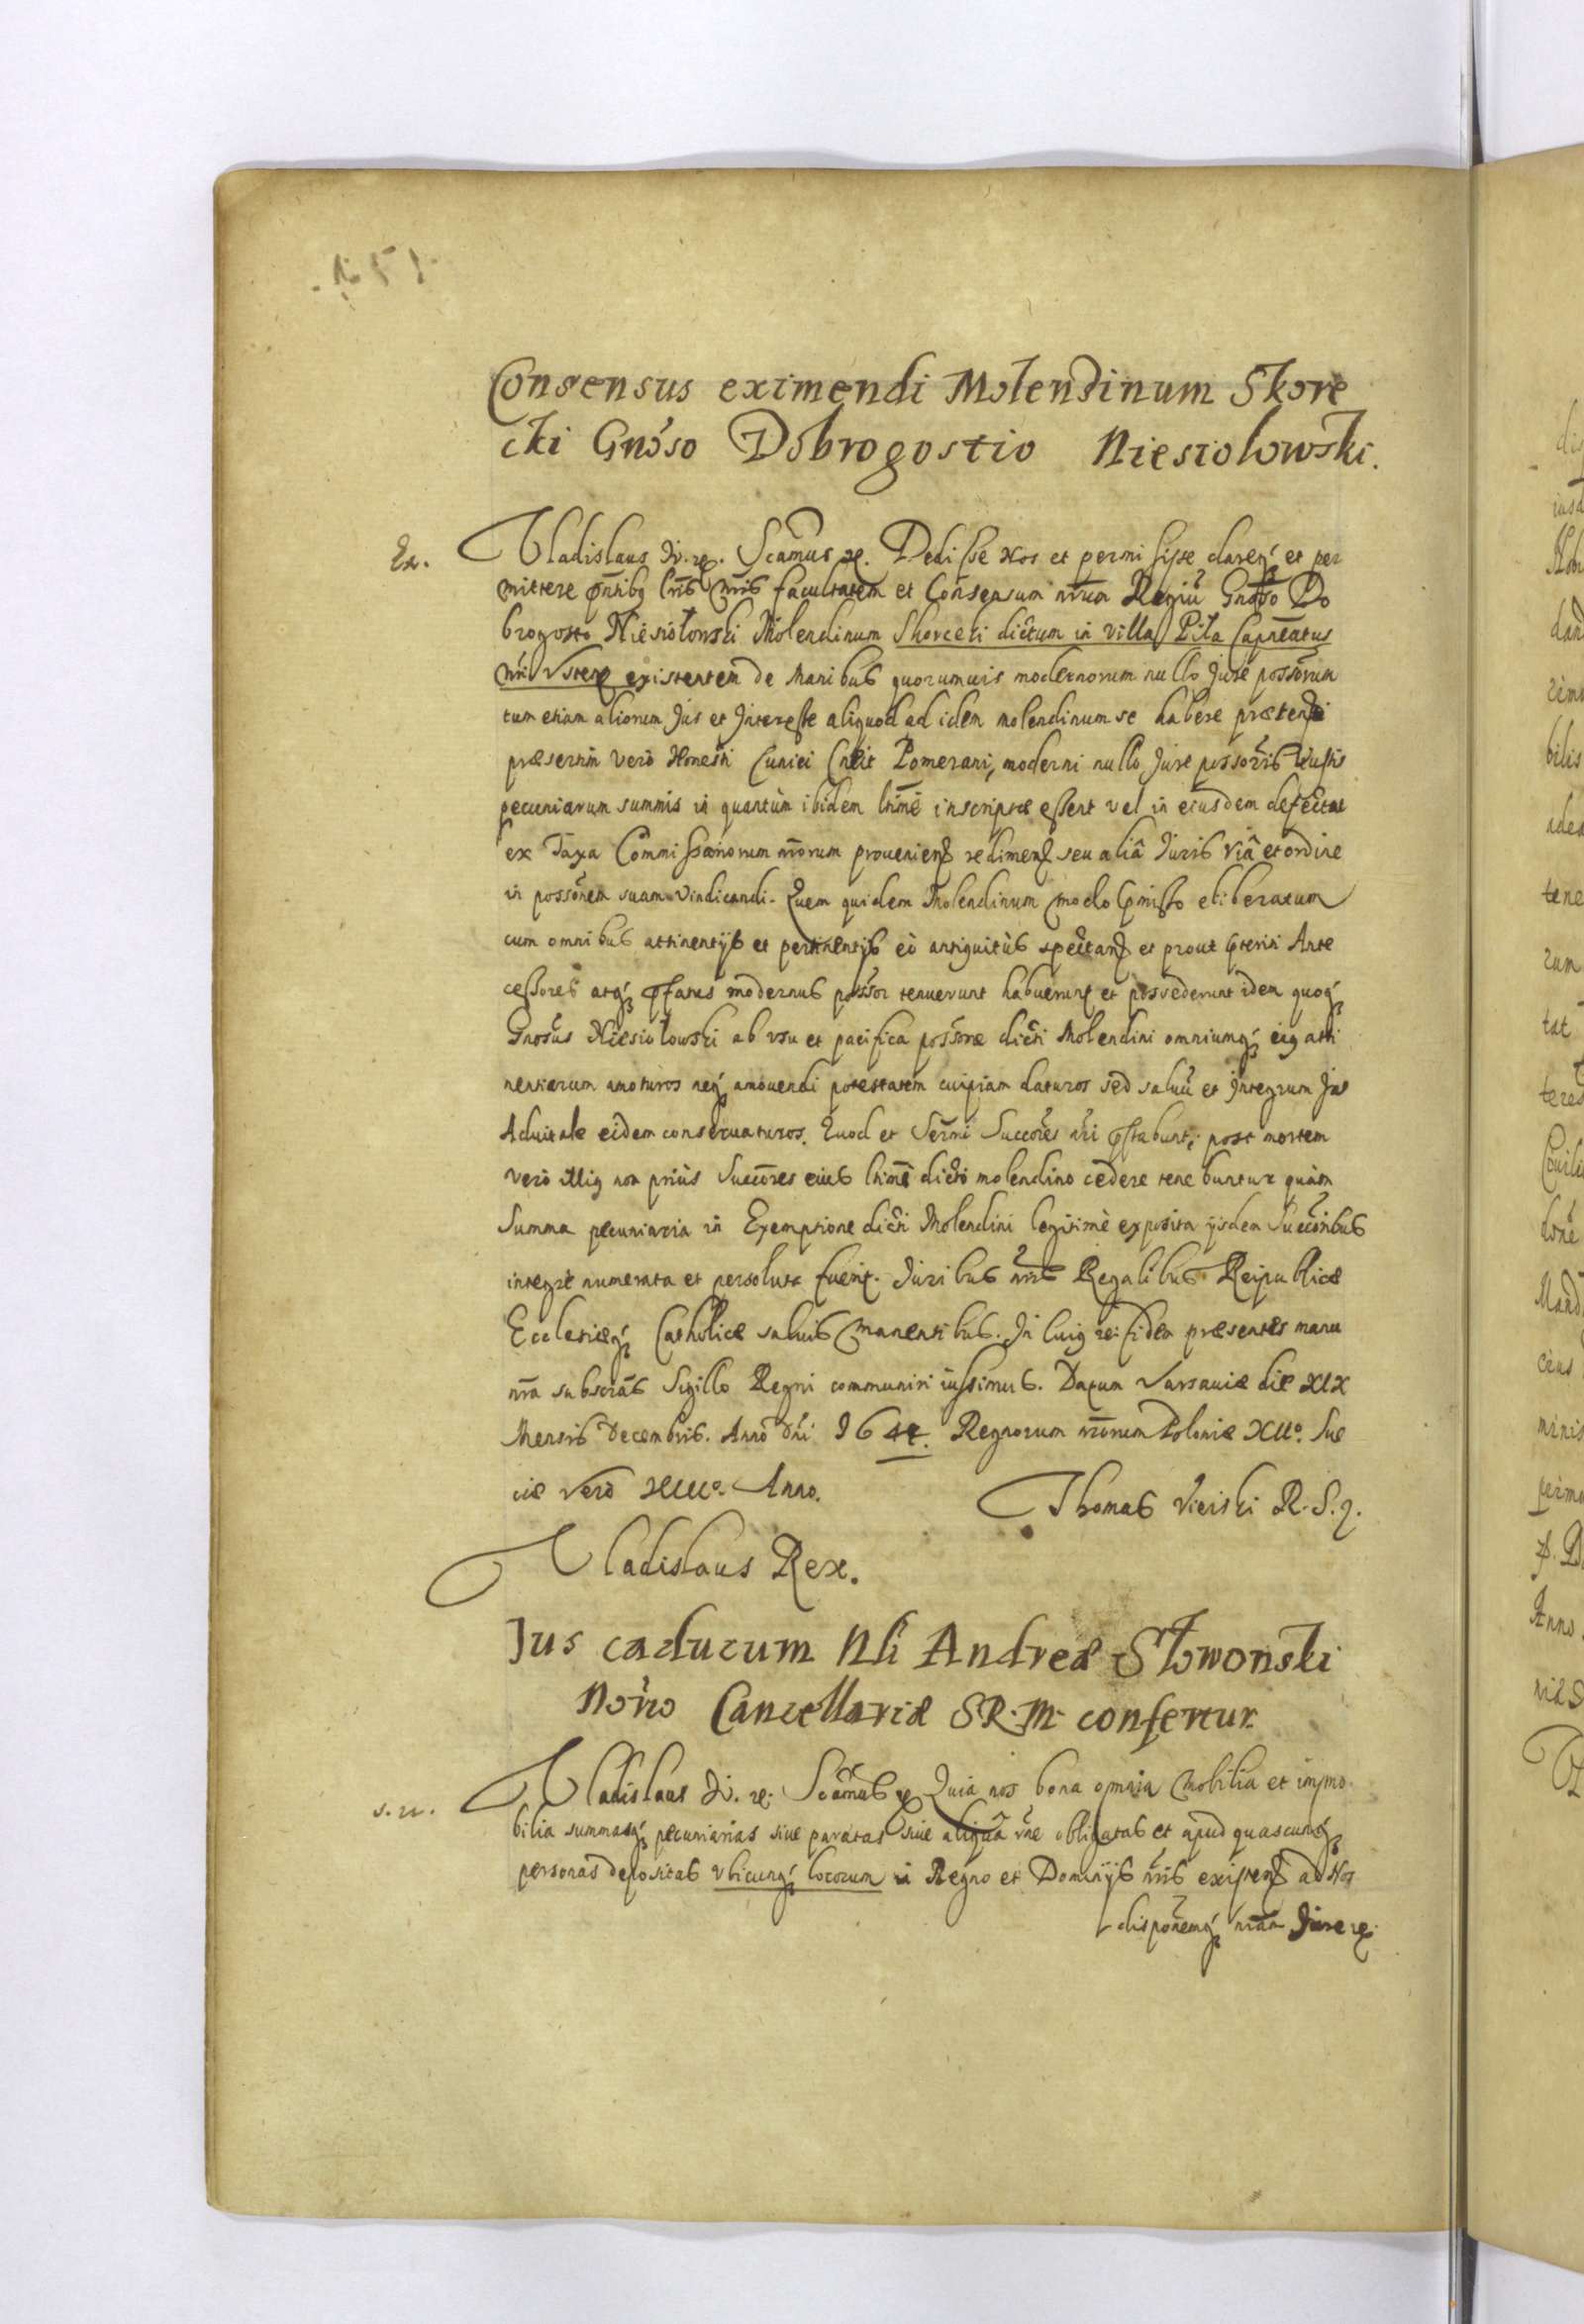 Consensus eximendi Molendinum Skore
cki Gnoso Dobrogostio Niesiolowski.
Ex. Vladislaus IV. etc. Scamus etc. Dedisse Nos et permisisse dareq et per
mittere pntibq lris nris facultatem et Consensum nrum Regiu Gnoso Do
brogosto Niesiołowski Molendinum Skorceki dictum in villa Piła Capneatus
nri Vscen existentem de Manibus quorumuis modernorum nullo Jure possorum
tum etiam aliorum Jus et Interesse aliquod ad idem molendinum se habere prætend
præsertim vero Honesti Pomerani, moderni nullo Jure possoris iustis
pecuniarum summis in quantùm ibidem ltime inscriptæ essent vel in eiusdem defectu
ex Taxa Commissariorum nrorum prouenien redimen seu aliâ Juris viâ et ordine
in possonem suam vindicandi. Quem quidem Molendinum modo pmisso eliberatum
cum omnibus attinentijs et pertinentijs eò antiquitùs spectan et prout pteriti Ante
cessores atq pfatus modernus possor tenuerunt habuerunt et possederunt idem quoq
Gnosus Niesiołowski ab vsu et pacifica possone dicti Molendini omniumq eiq atti
nentiarum amoturos neq amouendi potestatem cuipiam daturos sed saluu et Integrum Jus
Aduitale eidem conseruaturos. Quod et Sermi Succores nri pstabunt, post mortem
verò illiq non priùs Succores eius ltime dicto molendino cedere tenebuntur quàm
Summa pecuniaria in Exemptione dicti Molendini legitimè exposita ijsdem Succoribus
integrè numerata et persoluta fuerit. Juribus nris Regalibus Reipublicæ
Ecclesiæq Catholicæ saluis manentibus. In Cuiq rei fidem præsentes manu
nra subscras Sigillo Regni communiri iussimus. Datum Varsauiæ die XIX
Mensis Decembris. Anno Dni 1644. Regnorum nrorum Poloniæ XIIo. Sue
ciæ vero XIIIo. Anno.
Thomas Vieiski R. S. q.
Vladislaus Rex.
Jus caducum Nli Andreæ Słowonski
Norio Cancellariæ S R. M. confertur.
s. n. Vladislaus IV. etc. Scamus etc Quia nos bona omnia mobilia et immo
bilia summasq pecuniarias siue paratas siue aliqua rne obligatas et apud quascunq
personas depositas vbicunq locorum in Regno et Dominijs nris existen ad Nos
disponemq nram Jure etc.